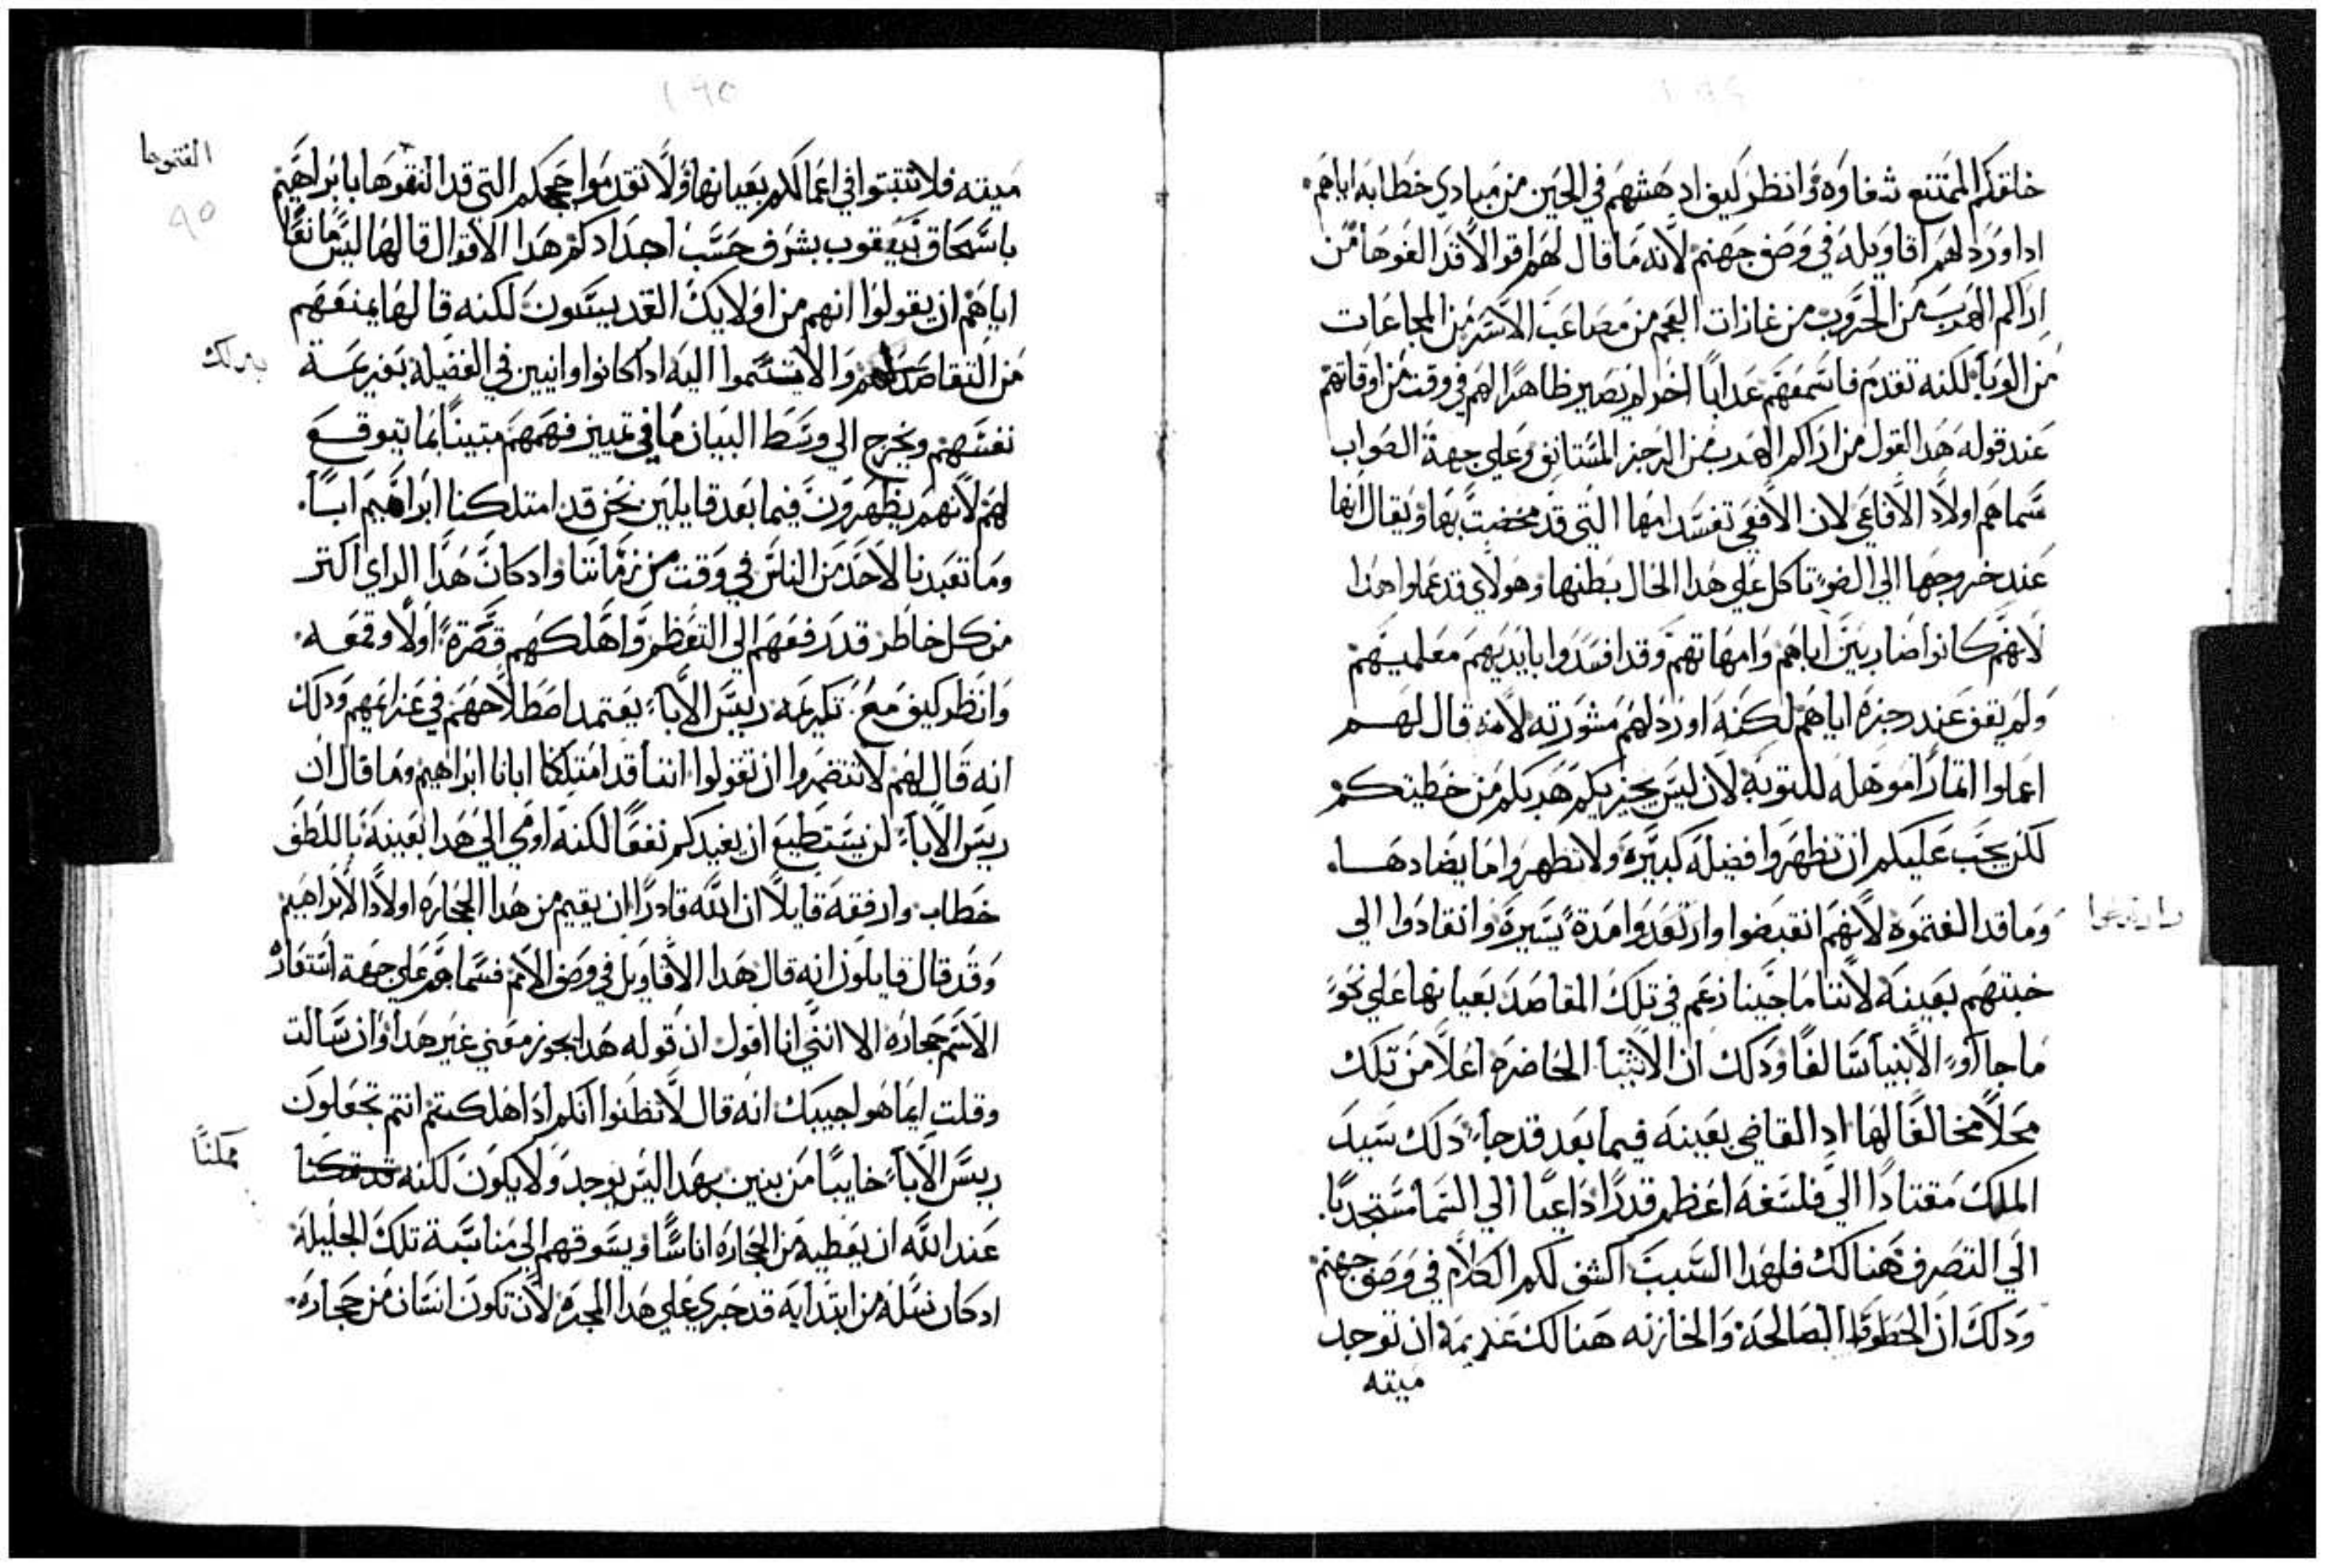 خلقكم الممتنع شفاوه وانظر كيف ادهشهم في الحين من مبادي خطابه اياهم
اداورد لهم اقاويله في وصف جهنم لانه ما قال لهم اقوالا قد الفوها من
اراكم الهرب من الحروب من غازات العجم من مصاعب الاسر من المجاعات
من الوبا لكنه تقدم فاسمعهم عدابا اخر لم يصير ظاهرا لهم في وقت من اوقاتهم
عند قوله هدا القول من اراكم الهرب من الرجز المستانف وعلي جهة الصواب
سماهم اولاد الافاعي لان الافعي تفسد امها التي قد مخضت بها ويقال انها
عند خروجها الي الضو تاكل علي هدا الحال بطنها وهولاي قد عملوا هدا
لانهم كانوا ضاربين اباهم وامهاتهم وقد افسدوا بايديهم معلميهم
ولم يقف عند رجزه اياهم لكنه اورد لهم مشورته لانه قال لهم
اعملوا اتمارا موهله للتوبه لان ليس يجزيكم هربكم من خطيتكم
لكن يجب عليكم ان تظهروا فضيله كبيره ولا تظهروا ما يضادها
وما قد الفتموه لانهم انقبضوا وارتعدوا مدة يسيرة وانقادوا الي
خبتهم بعينه لاننا ما جينا زعم في تلك المقاصد بعيانها علي نحو
ما جاوو الانبيا سالفا ودلك ان الاشيا الحاضره اعلا من تلك
محلا مخالفا لها اد القاضي بعينه فيما بعد قد جا دلك سيد
الملك مقتادا الي فلسفه اعظم قدرا داعيا الي السما مستجدبا
الي التصرف هنالك فلهدا السبب اكشف لكم الكلام في وصف جهنم
ودلك ان الحظوظ الصالحه والخازنه هنالك عديمه ان توجد
ميته
الفتموها
ميته فلا تتبتوا في اعمالكم بعيانها ولا تقدموا حججكم التي قد الفتوها بابراهيم
باسحاق بيعقوب بشرف حسب اجدادكم هدا الاقوال قالها ليس مانعا
اياهم ان يقولوا انهم من اولايك القديسون لكنه قالها يمنعهم
من التقاصد والاستموا اليه اداكانوا وانيين في الفضيله بغير عمة
بدلك
نفسهم ويخرج الي وسط البيان ما في تمييز فهمهم متبينا بما يتوقع
لهم لانهم يظهرون فيما بعد قايلين نحن قد امتلكنا ابراهيم ابا
وما تعبدنا لاحد من الناس في وقت من زماننا وادكان هدا الراي اكتر
من كل خاطر قد رفعهم الي التعظم واهلكهم قصره اولا وقمعه
وانظر كيف مع تكريمه ريس الابا يعتمد اصطلاحهم في عزايمهم ودلك
انه قال لهم لا تنتضروا ان تقولوا اننا قد امتلكنا ابانا ابراهيم وما قال ان
ريس الابا لن يستطيع ان يفيدكم نفعا لكنه اومي الي هدا بعينه باللطف
خطاب وارفقه قايلا ان الله قادرا ان يقيم من هدا الحجاره اولادا لابراهيم
وقد قال قايلون انه قال هدا الاقاويل في وصف الامم فسماهم علي جهة استعارة
الاسم حجاره الا انني انا اقول ان قوله هدا يحوز معني غير هدا وان سالت
وقلت ايما هو اجيبك انه قال لا تظنوا انكم ادا هلكتم انتم تجعلون
ريس الابا خايبا من بنين بهدا ليس يوجد ولا يكون لكنه
ممكنا
عند الله ان يعطيه من الحجاره اناسا ويسوقهم الي مناسبة تلك الجليله
ادكان نسله من ابتدايه قد جري علي هدا المجره لان تكون انسان من حجاره